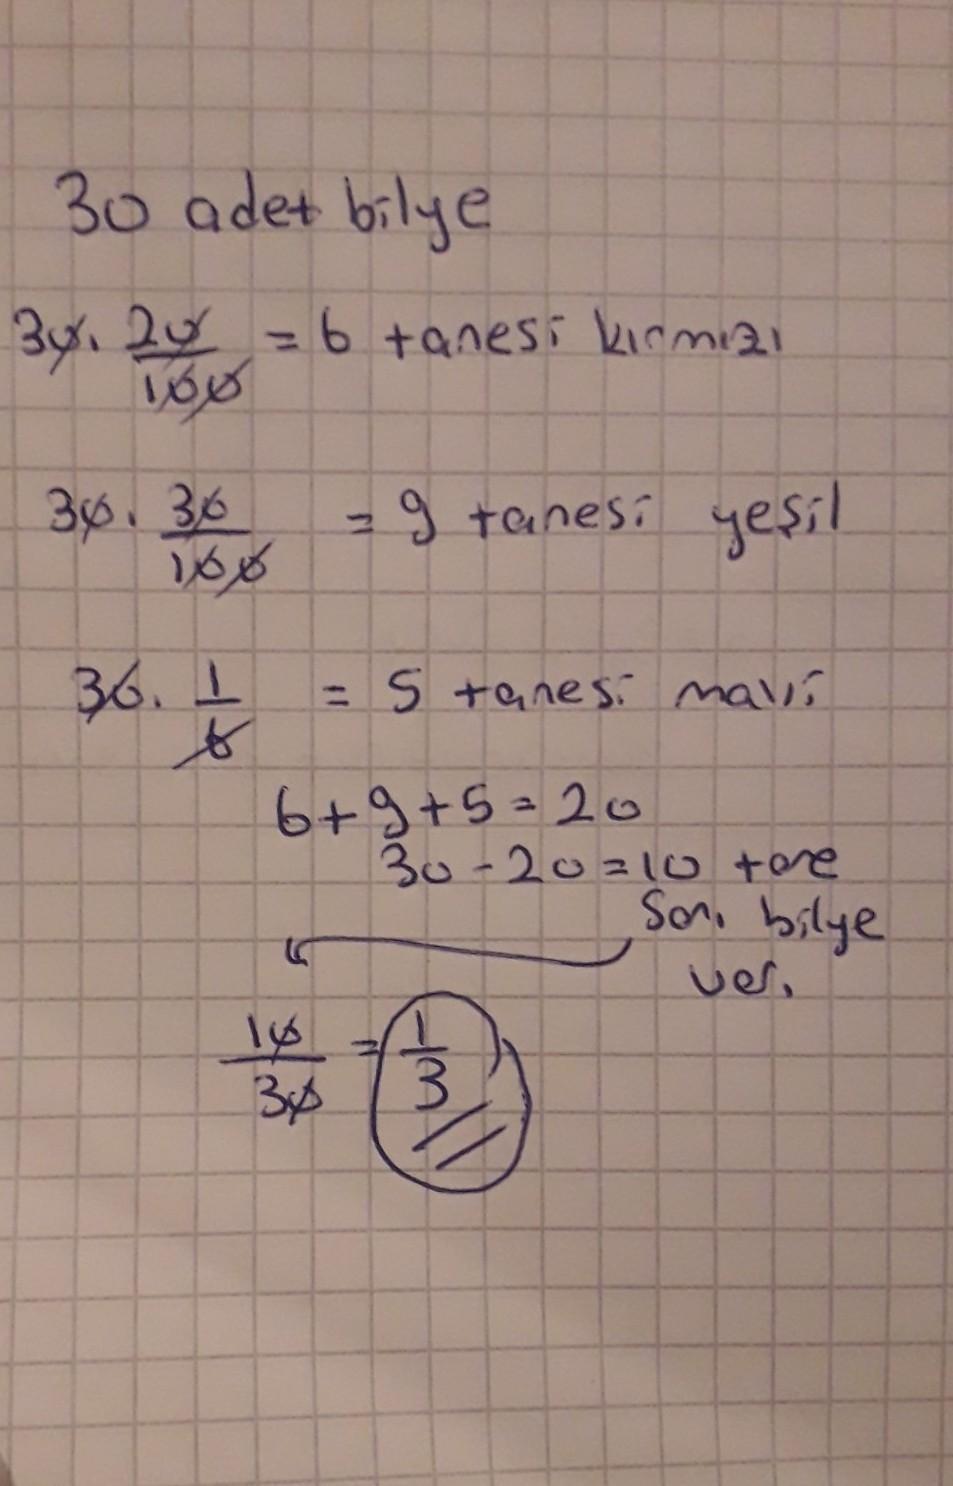 30 adet bilye
30. 20/100 = 6 tanesi kırmızı
30. 30/100 = 9 tanesi yeşil
30. 1/6 = 5 tanesi mavi
6+9+5=20
30-20=10 tane
Sarı bilye
var.
10/30 = 1/3